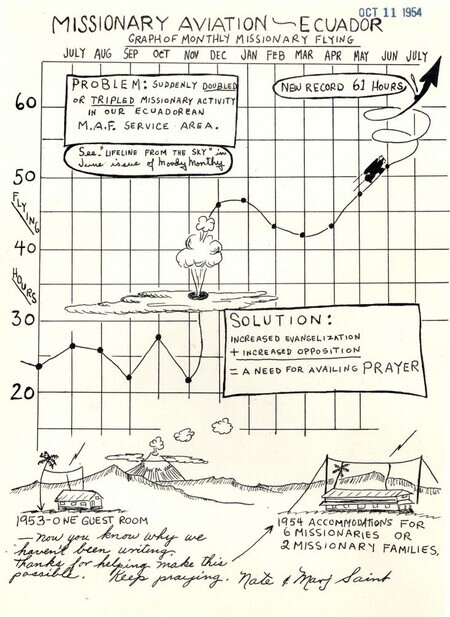 OCT 11 1954
MISSIONARY AVIATION — ECUADOR
GRAPH OF MONTHLY MISSIONARY FLYING
JULY AUG SEP OCT NOV DEC JAN FEB MAR APR MAY JUN JULY
PROBLEM: SUDDENLY DOUBLED
OR TRIPLED MISSIONARY ACTIVITY
IN OUR ECUADOREAN
M.A.F. SERVICE AREA.
See "LIFELINE FROM THE SKY" in
June issue of Moody Monthly
NEW RECORD 61 HOURS
60
50
FLYING
40
HOURS
30
20
SOLUTION:
INCREASED EVANGELIZATION
+ INCREASED OPPOSITION
= A NEED FOR AVAILING PRAYER
1953-ONE GUEST ROOM
1954 ACCOMMODATIONS FOR
6 MISSIONARIES OR
2 MISSIONARY FAMILIES.
— Now you know why we
haven't been writing.
Thanks for helping make this
possible. Keep praying. Nate & Marj Saint